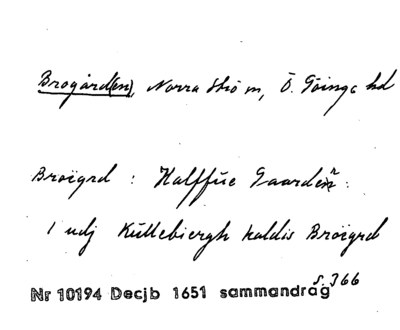 Brogård(en), Norra Strö m, Ö. Göinge hd
Broïgrd : Halffüe Gaarden :
1 udj Küllebiergh kaldis Broïgrd
s. 366
Nr 10194 Decjb 1651 sammandrag